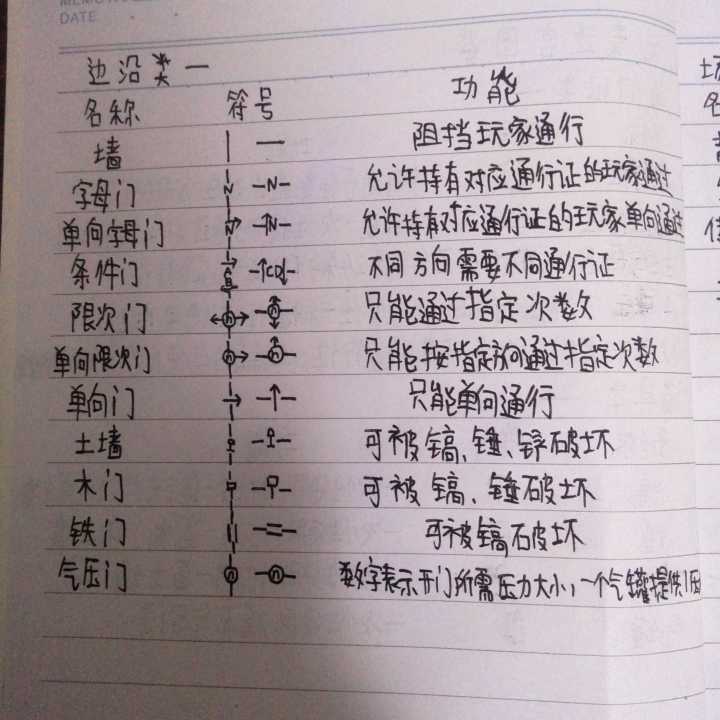 DATE
边沿类一
名称 符号 功能
墙 阻挡玩家通行
字母门 N -N- 允许持有对应通行证的玩家通过
单向字母门 N -N- 允许持有对应通行证的玩家单向通过
条件门 不同方向需要不同通行证
限次门 n n 只能通过指定次数
单向限次门 n n 只能按指定方向通过指定次数
单向门 只能单向通行
土墙 可被镐、锤、锌破坏
木门 可被镐、锤破坏
铁门 可被镐破坏
气压门 n n 数字表示开门所需压力大小,一个气罐提供1压